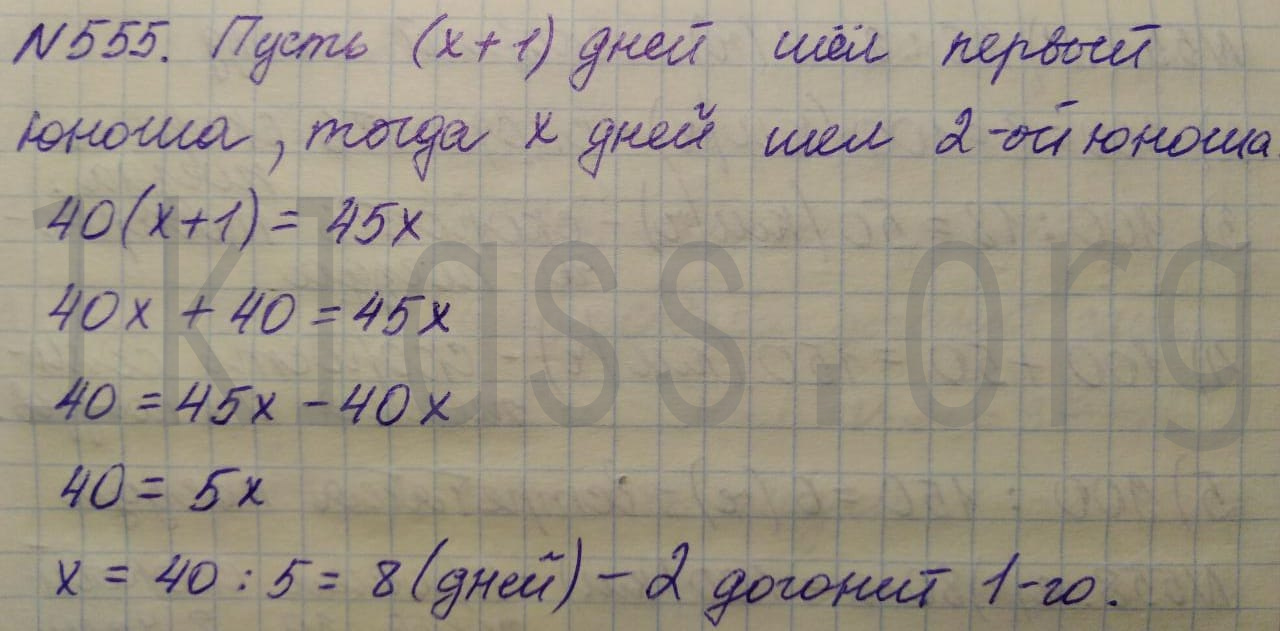 N555. Пусть (x+1) дней шёл первый
юноша, тогда x дней шел 2-ой юноша.
40(x+1) = 45x
40x + 40 = 45x
40 = 45x - 40x
40 = 5x
x = 40 : 5 = 8 (дней) - 2 догонит 1-го.
1klass.org